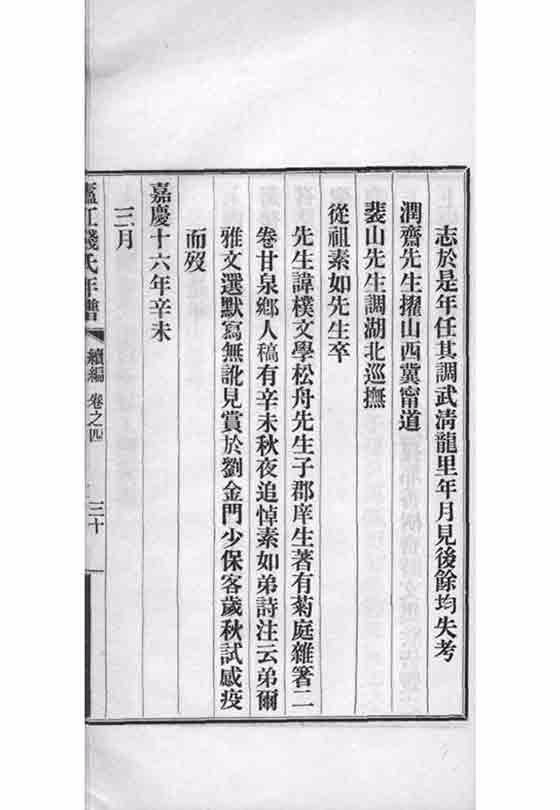 志於是年任其調武清龍里年月見後餘均失考
潤齋先生擢山西冀甯道
裴山先生調湖北巡撫
從祖素如先生卒
先生諱樸文學松舟先生子郡庠生著有菊庭雜箸二
卷甘泉鄉人稿有辛未秋夜追悼素如弟詩注云弟爾
雅文選默寫無訛見賞於劉金門少保客歲秋試感疫
而歿
嘉慶十六年辛未
三月
廬江錢氏年譜 續編 卷之四 三十